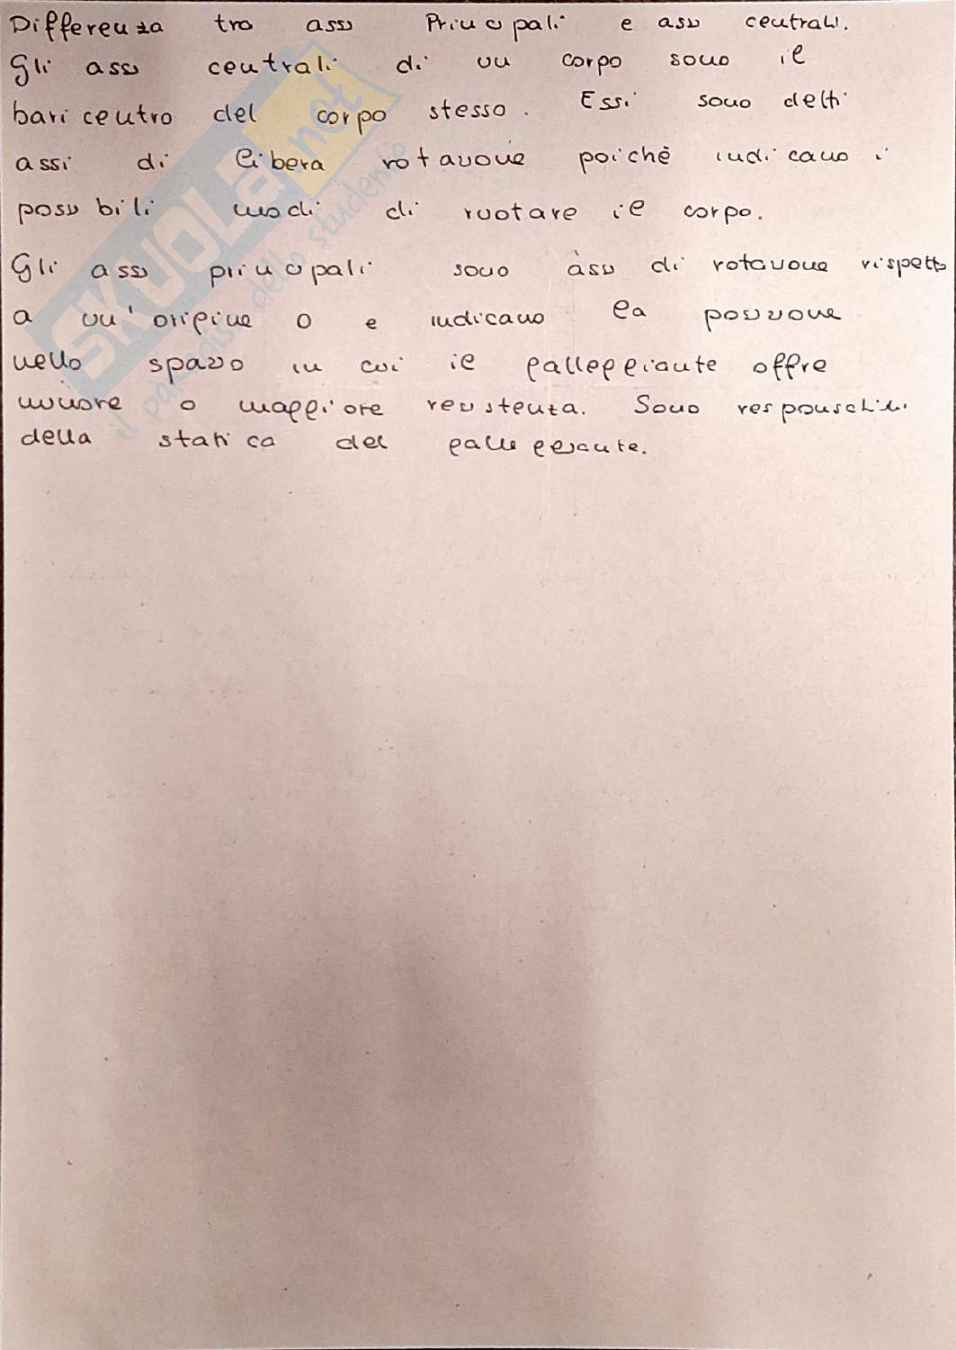 Differenza tra assi Principali e assi centrali.
Gli assi centrali di un corpo sono il
baricentro del corpo stesso. Essi sono detti
assi di libera rotazione poichè indicano i
possibili modi di ruotare il corpo.
Gli assi principali sono assi di rotazione rispetto
a un'origine O e indicano la posizione
nello spazio in cui il galleggiante offre
minore o maggiore resistenza. Sono responsabili
della statica del galleggiante.
SKUOLA.net
il paradiso dello studente